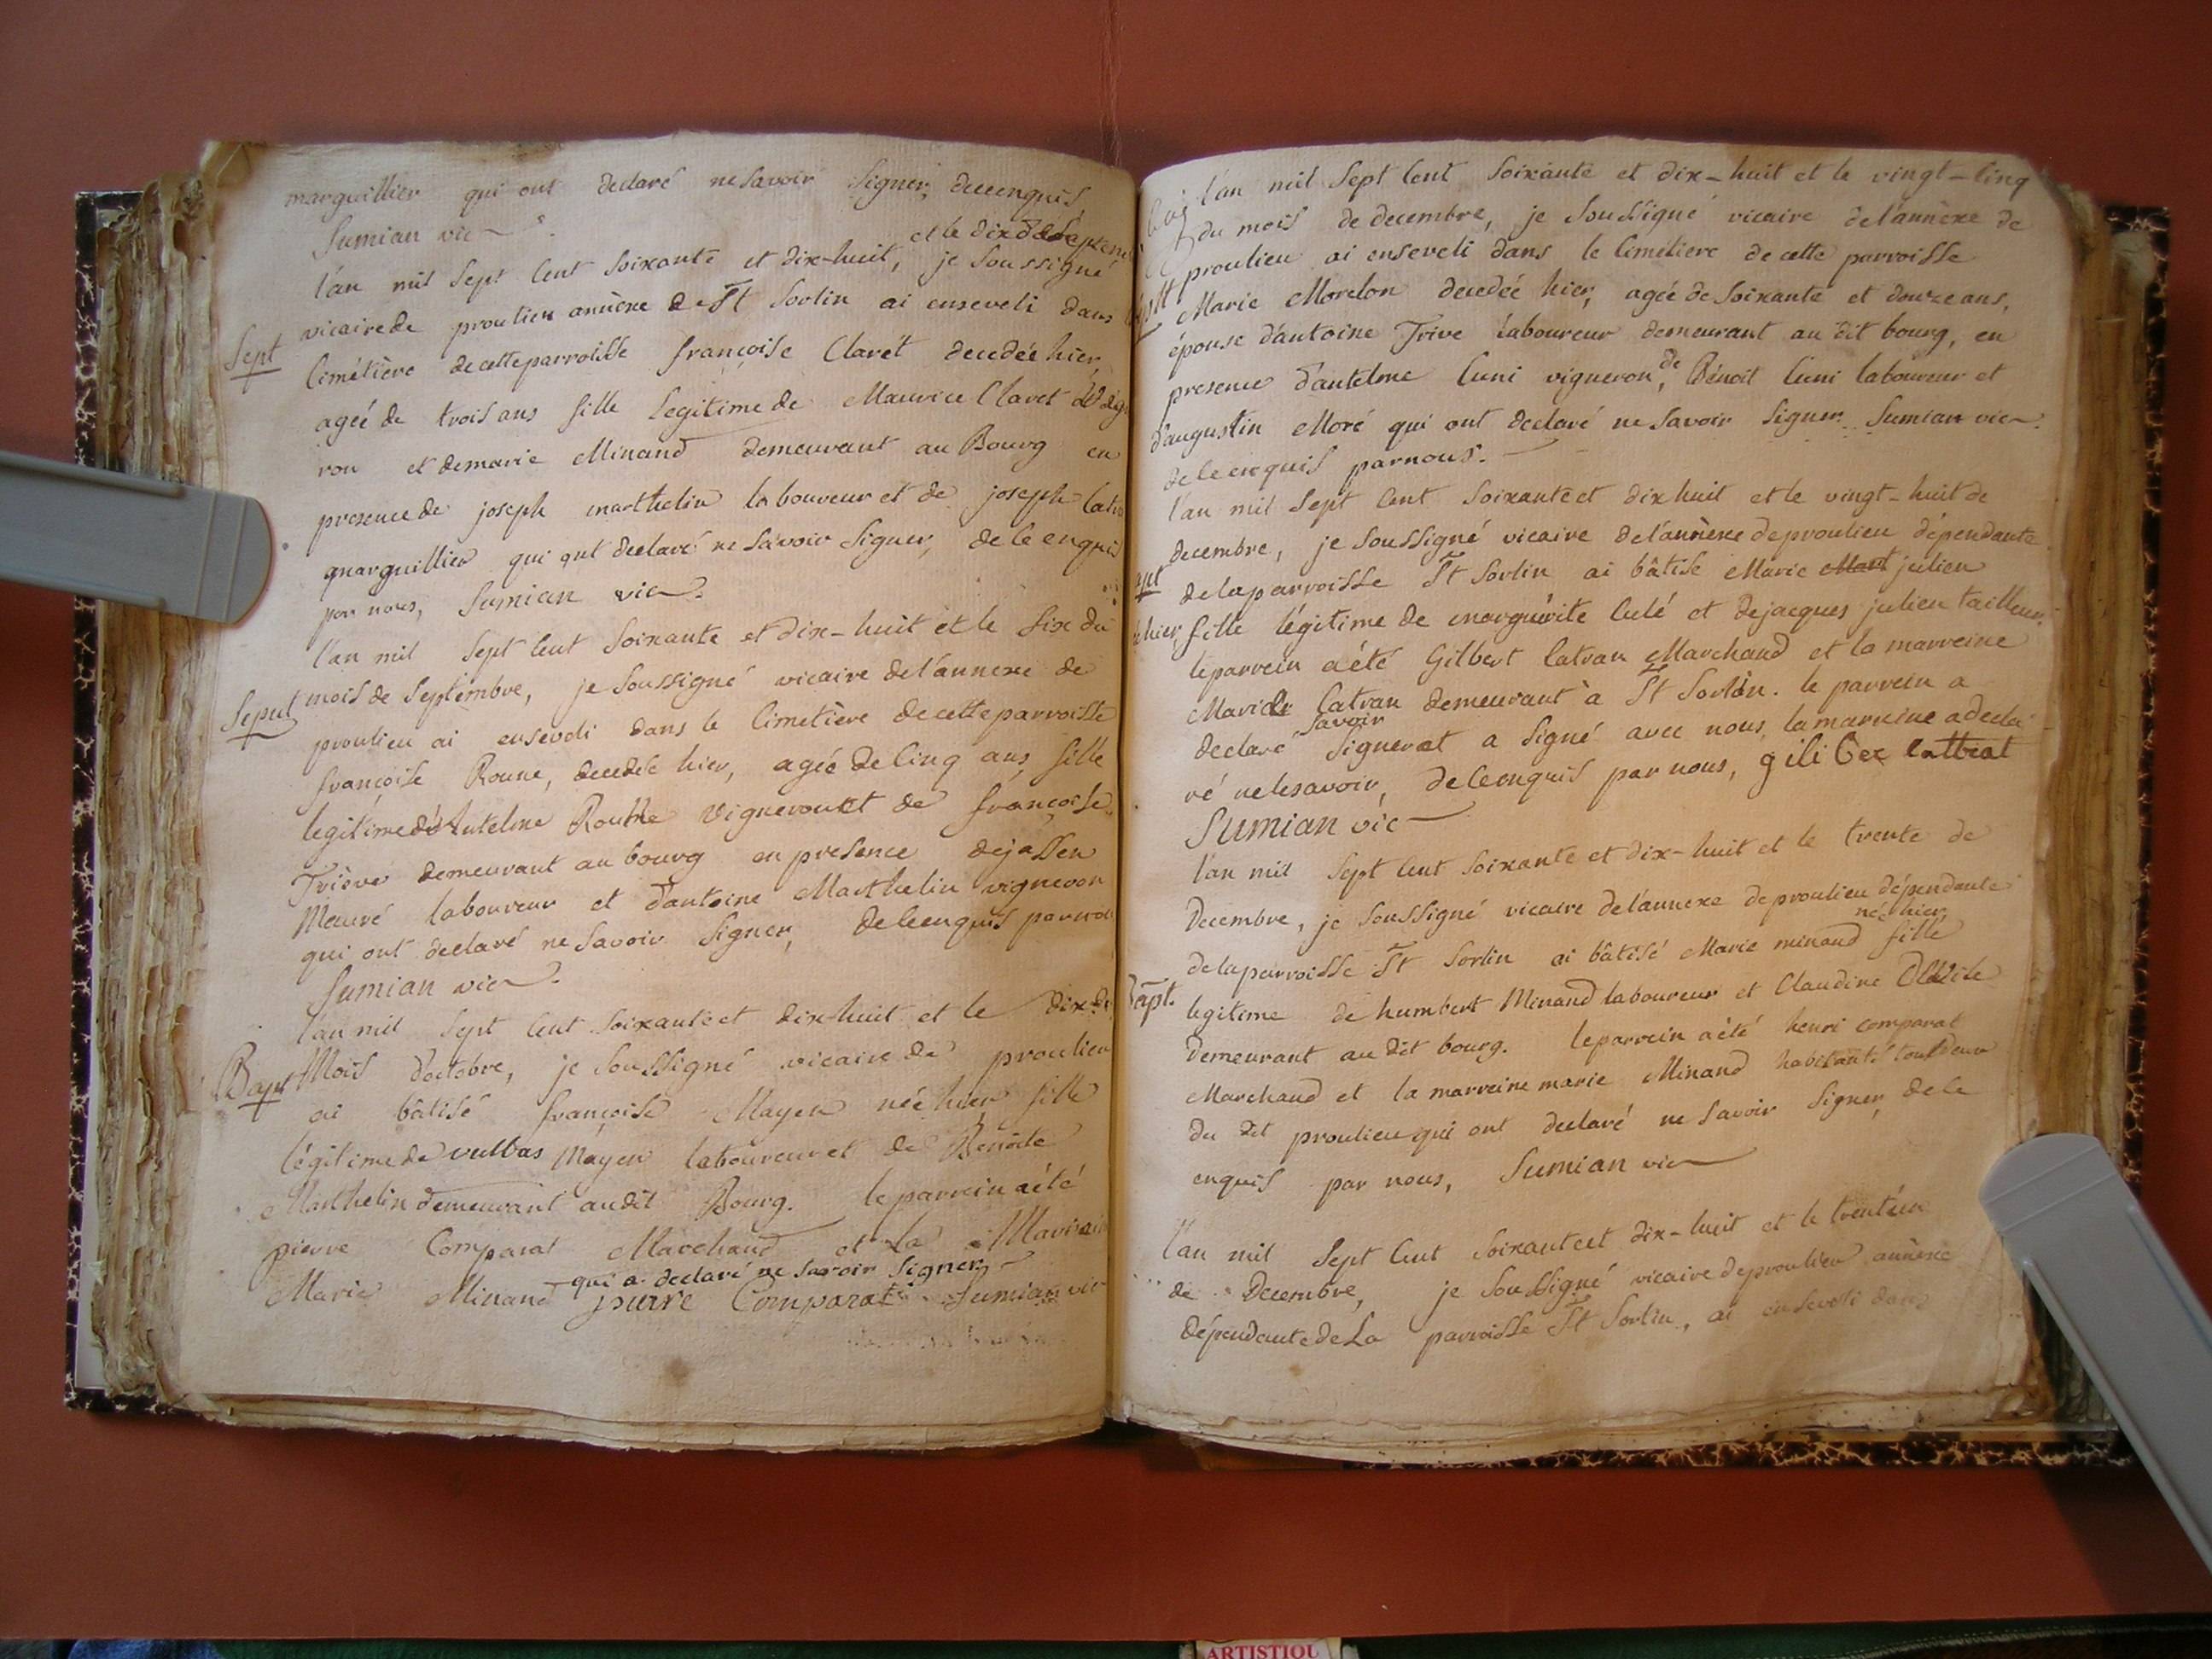 marguillier qui ont declaré ne savoir signer, de ce enquis
Sumian vic
et le dix de Septem
l'an mil sept cent soixante et dix-huit, je soussigné
Sept
vicaire de proulieu annèxe de St Sorlin ai enseveli dans
cimétière de cette parroisse françoise Claret decedée hier
ageé de trois ans fille legitime de Maurice Claret
ron et de marie Minand demeurant au Bourg en
presence de joseph marthelin laboureur et de joseph
marguillier qui ont declaré ne savoir signer, de ce enquis
par nous, Sumian vic
l'an mil sept cent soixante et dix-huit et le six du
Sepul
mois de septembre, je soussigné vicaire de l'annexe de
proulieu ai enseveli dans le cimetière de cette parroisse
françoise Roune, decedée hier, ageé de cinq ans fille
legitime d'Antelme Vigneron et de françoise
Triève demeurant au bourg en presence de jassen
Meuré laboureur et d'antoine Marthelin vigneron
qui ont declaré ne savoir signer, de ce enquis par nou
Sumian vic
l'an mil sept cent soixante et dix-huit et le dix du
Bapt
Mois d'octobre, je soussigné vicaire de proulieu
ai bâtisé françoise Mayen née hier fille
légitime de vulbas Mayen laboureur et de Benoite
Marthelin demeurant au dit Bourg. le parrein a été
pierre Comparat Marchand et la
qui a declaré ne savoir signer
Marie Minand pierre Comparat Sumian vic
l'an mil sept cent soixante et dix-huit et le vingt-cinq
du mois de decembre, je soussigné vicaire de l'annèxe de
proulieu ai enseveli dans le cimetiere de cette parroisse
Marie Morelon decedeé hier, ageé de soixante et douze ans,
épouse d'antoine Trive laboureur demeurant au dit bourg, en
presence d'antelme Cuni vigneron, de Bénoit Cuni laboureur et
d'augustin Moré qui ont declaré ne savoir signer Sumian vic
de ce enquis par nous.
l'an mil sept cent soixante et dix huit et le vingt-huit de
decembre, je soussigné vicaire de l'annèxe de proulieu dépendante
apt
de la parroisse St Sorlin ai bâtisé Marie julien
hier, fille légitime de marguérite Culé et de jacques julien tailleur
le parrein a été Gilbert latran Marchand et la marreine
Marie latran demeurant à St Sorlin. le parrein a
savoir
declaré signer et a signé avec nous, la marreine a decla
ré ne le savoir, de ce enquis par nous, gili
Sumian vic
l'an mil sept cent soixante et dix-huit et le trente de
Decembre, je soussigné vicaire de l'annexe de proulieu dépendante
née hier
de la parroisse St Sorlin ai bâtisé Marie minand fille
Bapt.
legitime de humbert Minand laboureur et Claudine
demeurant au dit bourg. le parrein a été henri comparat
Marchand et la marreine marie Minand habitants tout deux
du dit proulieu qui ont declaré ne savoir signer, de ce
enquis par nous, Sumian vic
l'an mil sept cent soixante et dix-huit et le trentéun
de Decembre, je soussigné vicaire de proulieu annèxe
dépendante de La parroisse St Sorlin, ai enseveli dans
ARTISTIQU